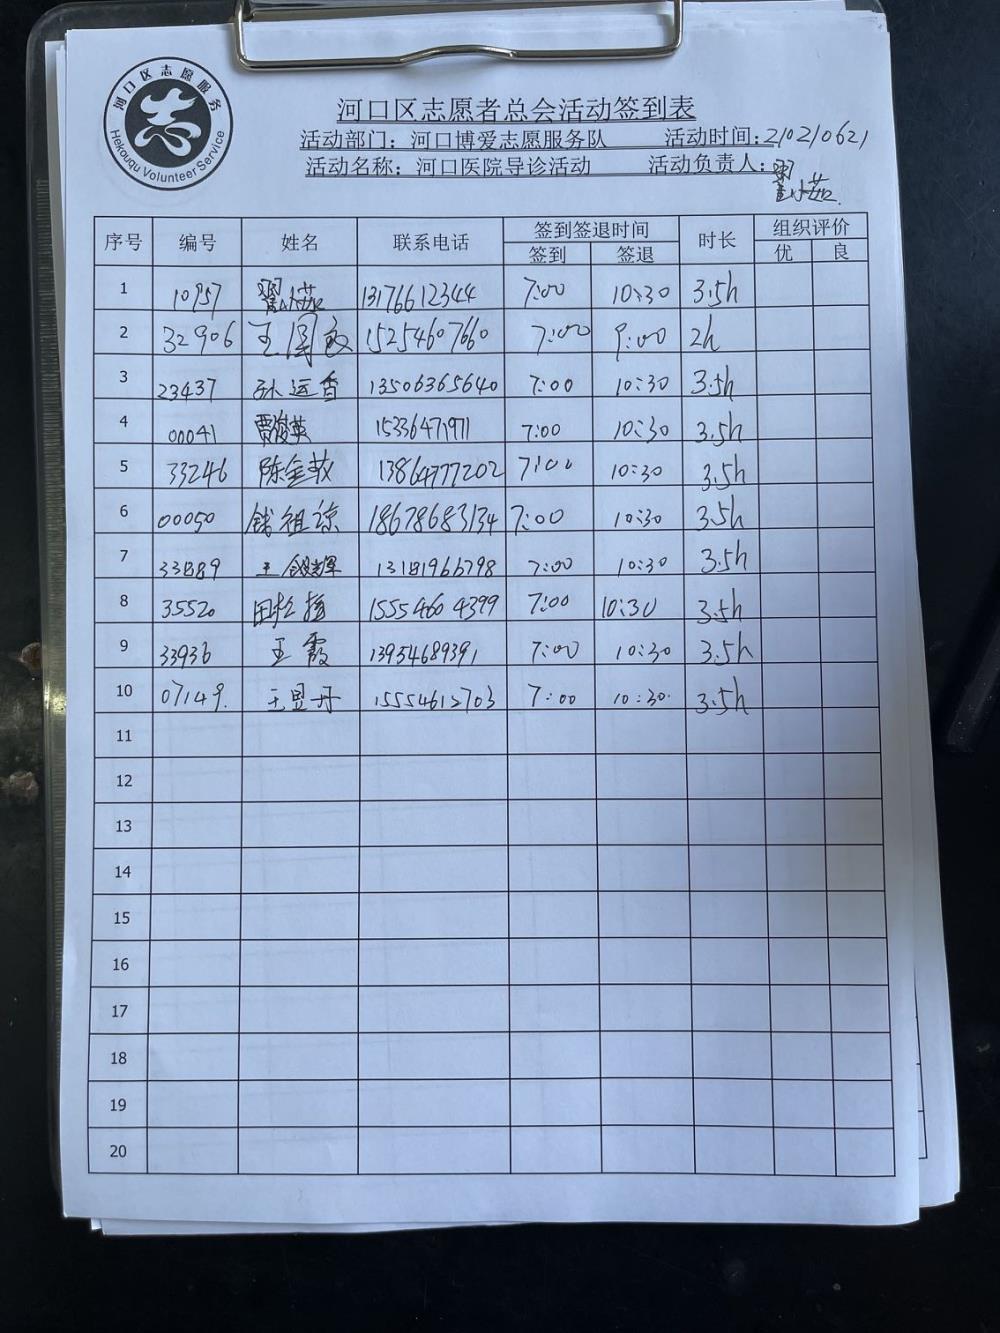 河口区志愿服务
Hekouqu Volunteer Service
志
河口区志愿者总会活动签到表
活动部门：河口博爱志愿服务队 活动时间：210210621
活动名称：河口医院导诊活动 活动负责人：
序号 编号 姓名 联系电话 签到签退时间 时长 组织评价
签到 签退 优 良
1 10957 13176612344 7:00 10:30 3.5h
2 32906 王 15254607660 7:00 9:00 2h
3 23437 孙运香 13506365640 7:00 10:30 3.5h
4 00041 贾俊英 15336471971 7:00 10:30 3.5h
5 33246 陈金敏 13864777202 7:00 10:30 3.5h
6 00050 钱祖 18678683134 7:00 10:30 3.5h
7 33889 王 13181966798 7:00 10:30 3.5h
8 35520 田 15554604399 7:00 10:30 3.5h
9 33936 王霞 13954689391 7:00 10:30 3.5h
10 07149. 王昱丹 15554612703 7:00 10:30. 3.5h
11
12
13
14
15
16
17
18
19
20